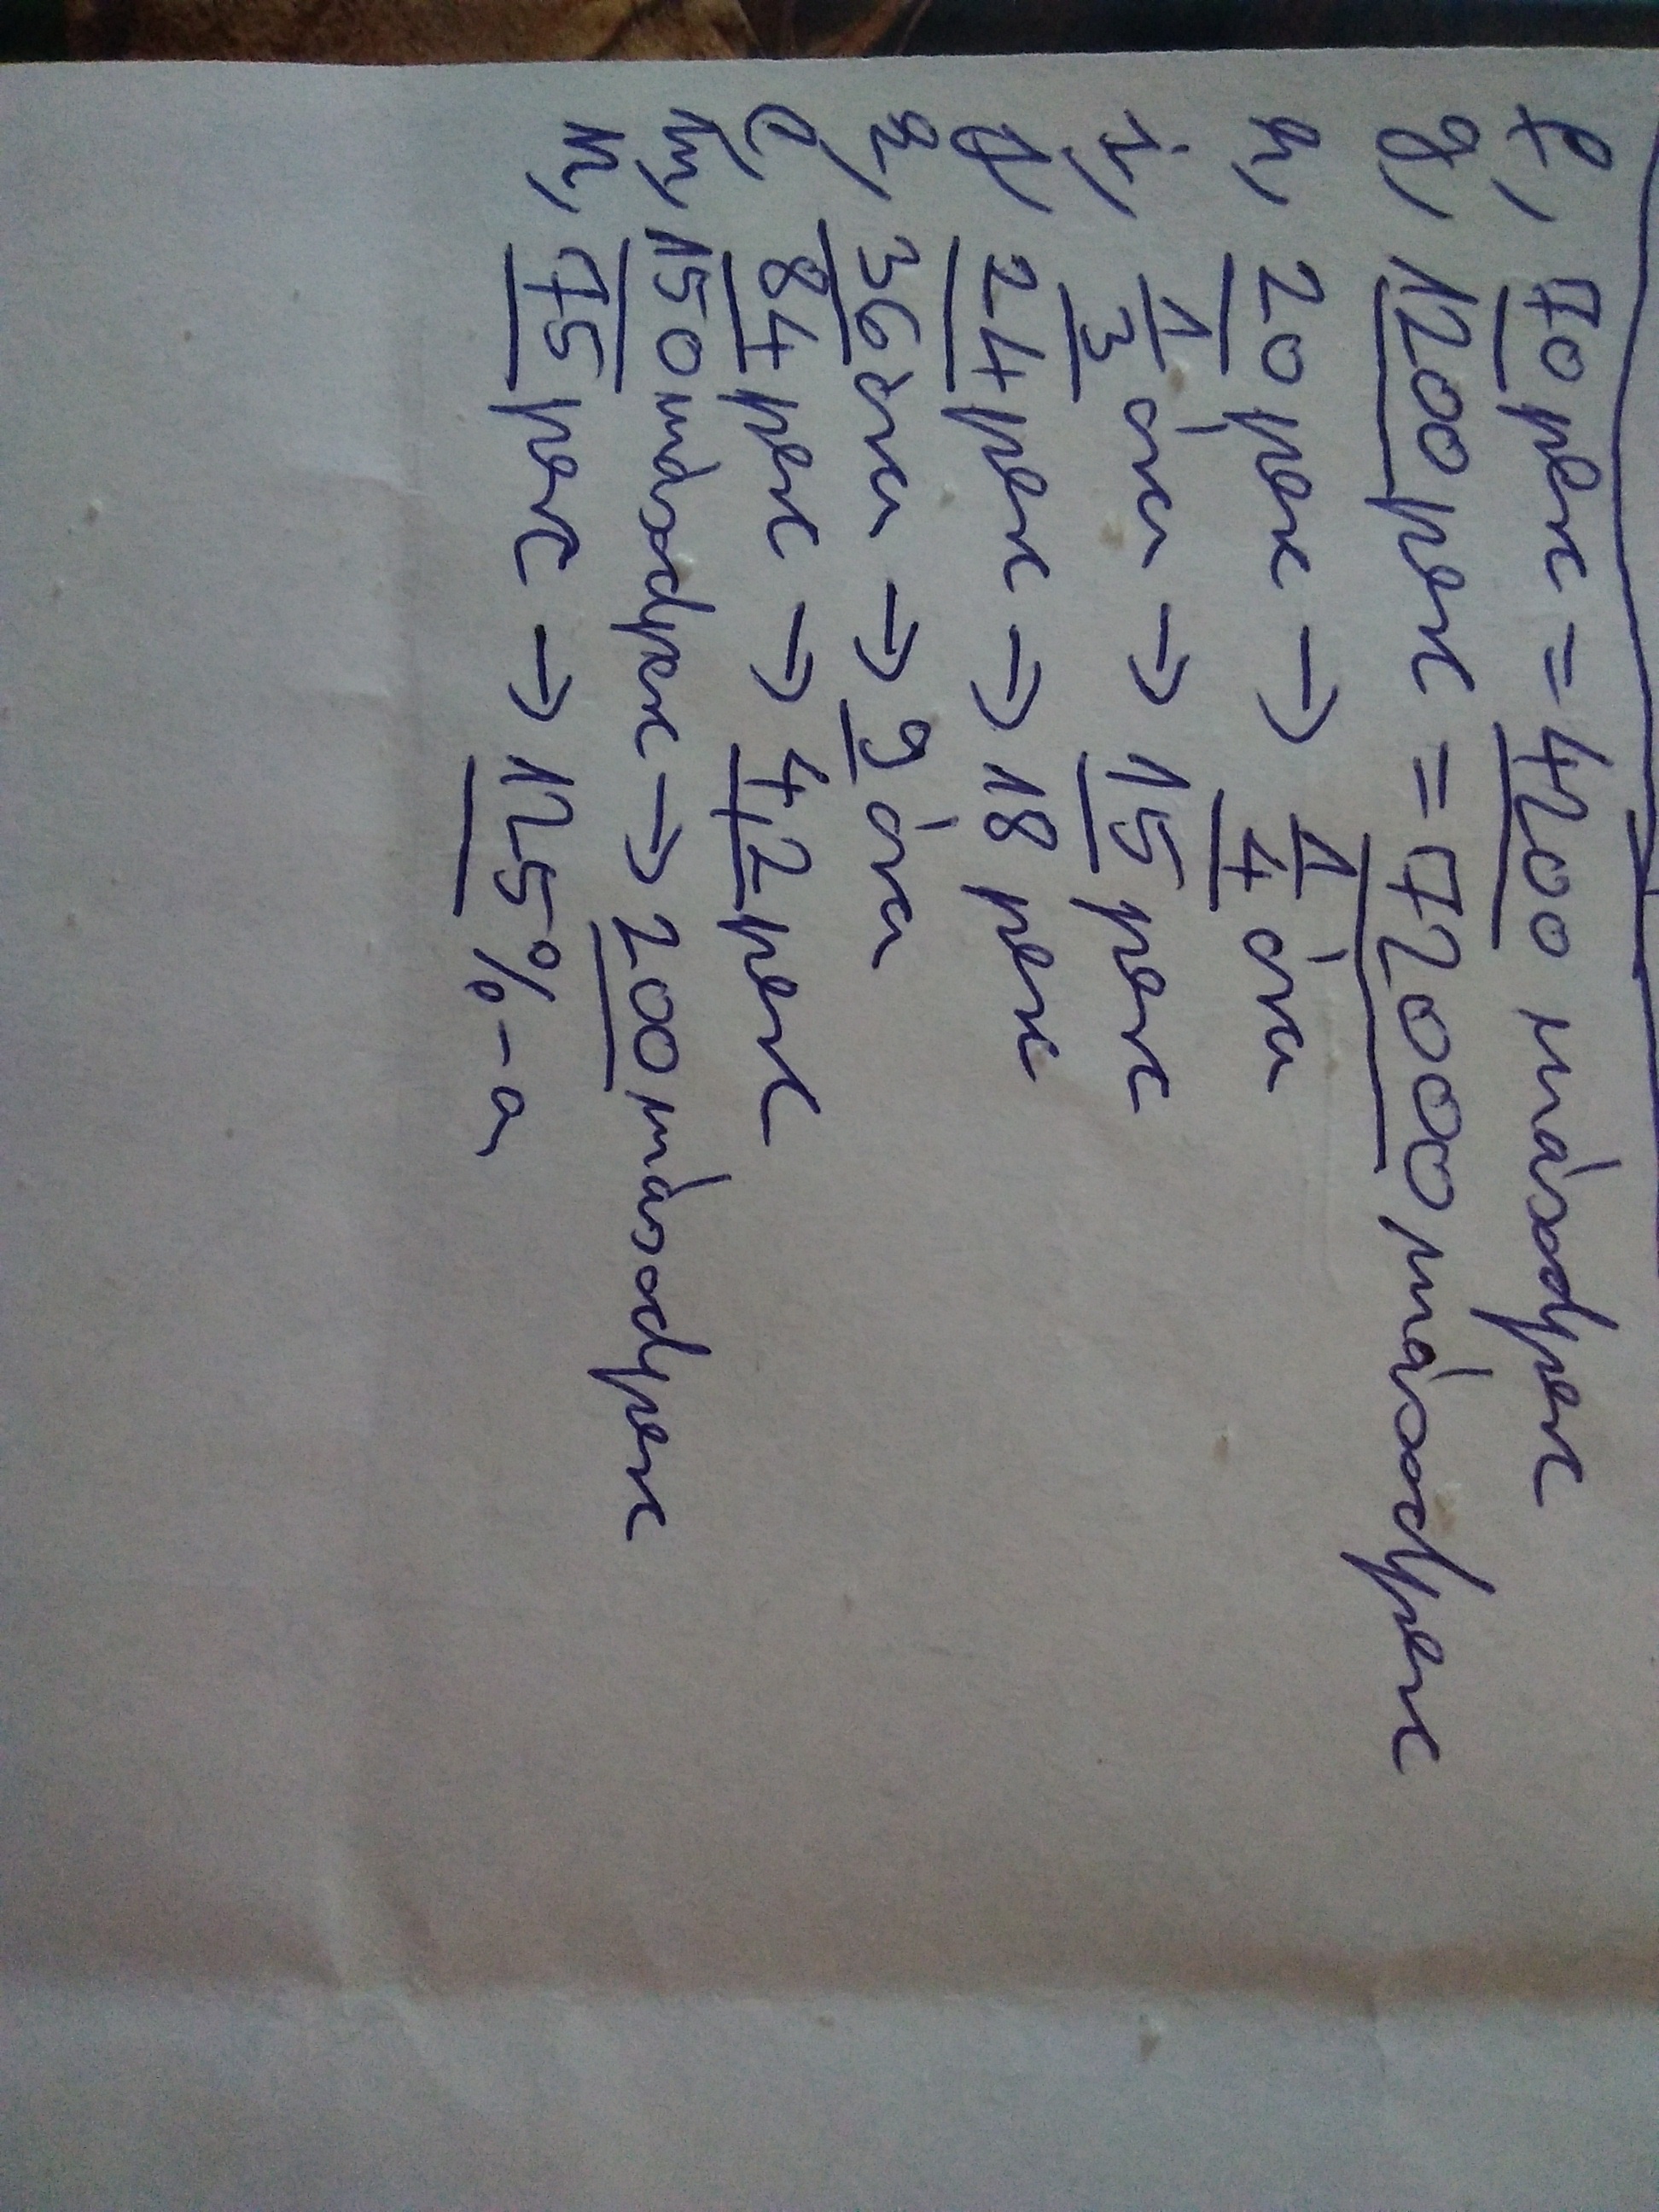 f, 70 perc = 4200 másodperc
g, 1200 perc = 72000 másodperc
h, 20 perc → 1/4 óra
i, 1/3 óra → 15 perc
j, 24 perc → 18 perc
k, 36 óra → 9 óra
l, 84 perc → 42 perc
m, 150 másodperc → 200 másodperc
n, 75 perc → 125%-a